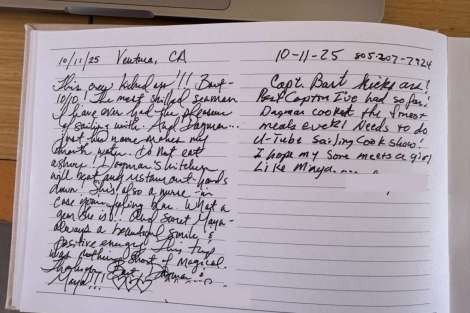 10/11/25 Ventura, CA
This crew kicked up!!! Bart-
10/0! The most skilled seaman
I have ever had the pleasure
of sailing with. And Dagmar...
just her name makes my
mouth water. Do not eat
ashore! Dagmar's kitchen
will beat any restaurant hands
down! She's also a nurse - in
case your feeling blue. What a
gem she is!! And sweet Maya-
always a beautiful smile &
positive energy. This trip
was nothing short of magical.
Thank you Bart, Dagmar &
Maya!!!
10-11-25 805-207-7924
Capt. Bart kicks ass!
Best Captain I've had so far!
Dagmar cooked the most
meals ever! Needs to do
U-Tube Sailing Cook Show!
I hope my Sons meets a girl
Like Maya.